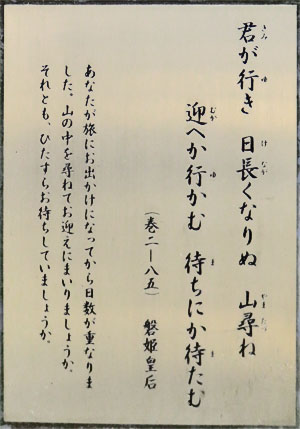 君が行き 日長くなりぬ 山尋ね
迎へか行かむ 待ちにか待たむ
(巻二ー八五) 磐姫皇后
あなたが旅にお出かけになってから日数が重なりま
した。山の中を尋ねてお迎えにまいりましょうか。
それとも、ひたすらお待ちしていましょうか。